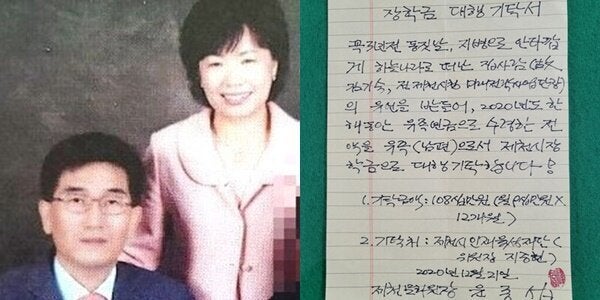 장학금 대행 기탁서
꼭 3년전 동짓날, 지병으로 안타깝
게 하늘나라로 떠난 집사람(故
김기숙, 전 제천시청
의 유언을 받들어, 2020년도 한
해동안 유족연금으로 수령한 전
액을 유족(남편)으로서 제천시장
학금으로 대행기탁합니다
1. 기탁금액:
12개월)
2. 기탁처 : 제천시인재육성재단(
2020년 12월 21일
제천문화원장 윤종섭